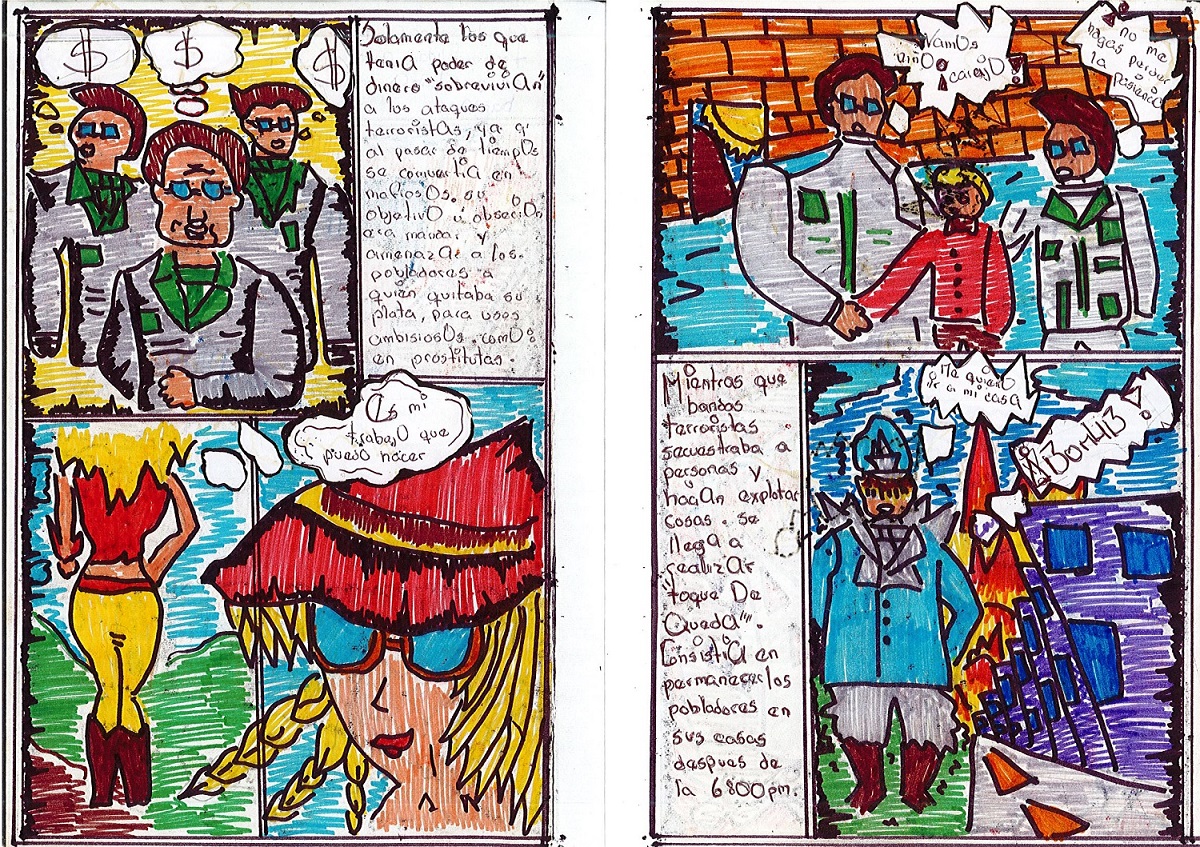 $
$
$
Solamente los que
tenia poder de
dinero "sobrevivian"
a los ataques
terroristas, ya q'
al pasar de tiempos
se convertia en
mafiosos. su
objetivo u obsecion
era mandar y
amenazar a los
pobladores a
quien quitaba su
plata, para usos
ambisiosos. como
en prostitutas.
Es mi
trabajo que
puedo hacer
Vamos
niño
carajo!
no me
hagas perder
la pasiencia
Mientras que
bandos
terroristas
secuestraba a
personas y
hacian explotar
cosas. se
llega a
realizar
"toque De
Queda".
Consistia en
permanecer los
pobladores en
sus casas
despues de
la 6:00 pm.
Me quiero
ir a mi casa